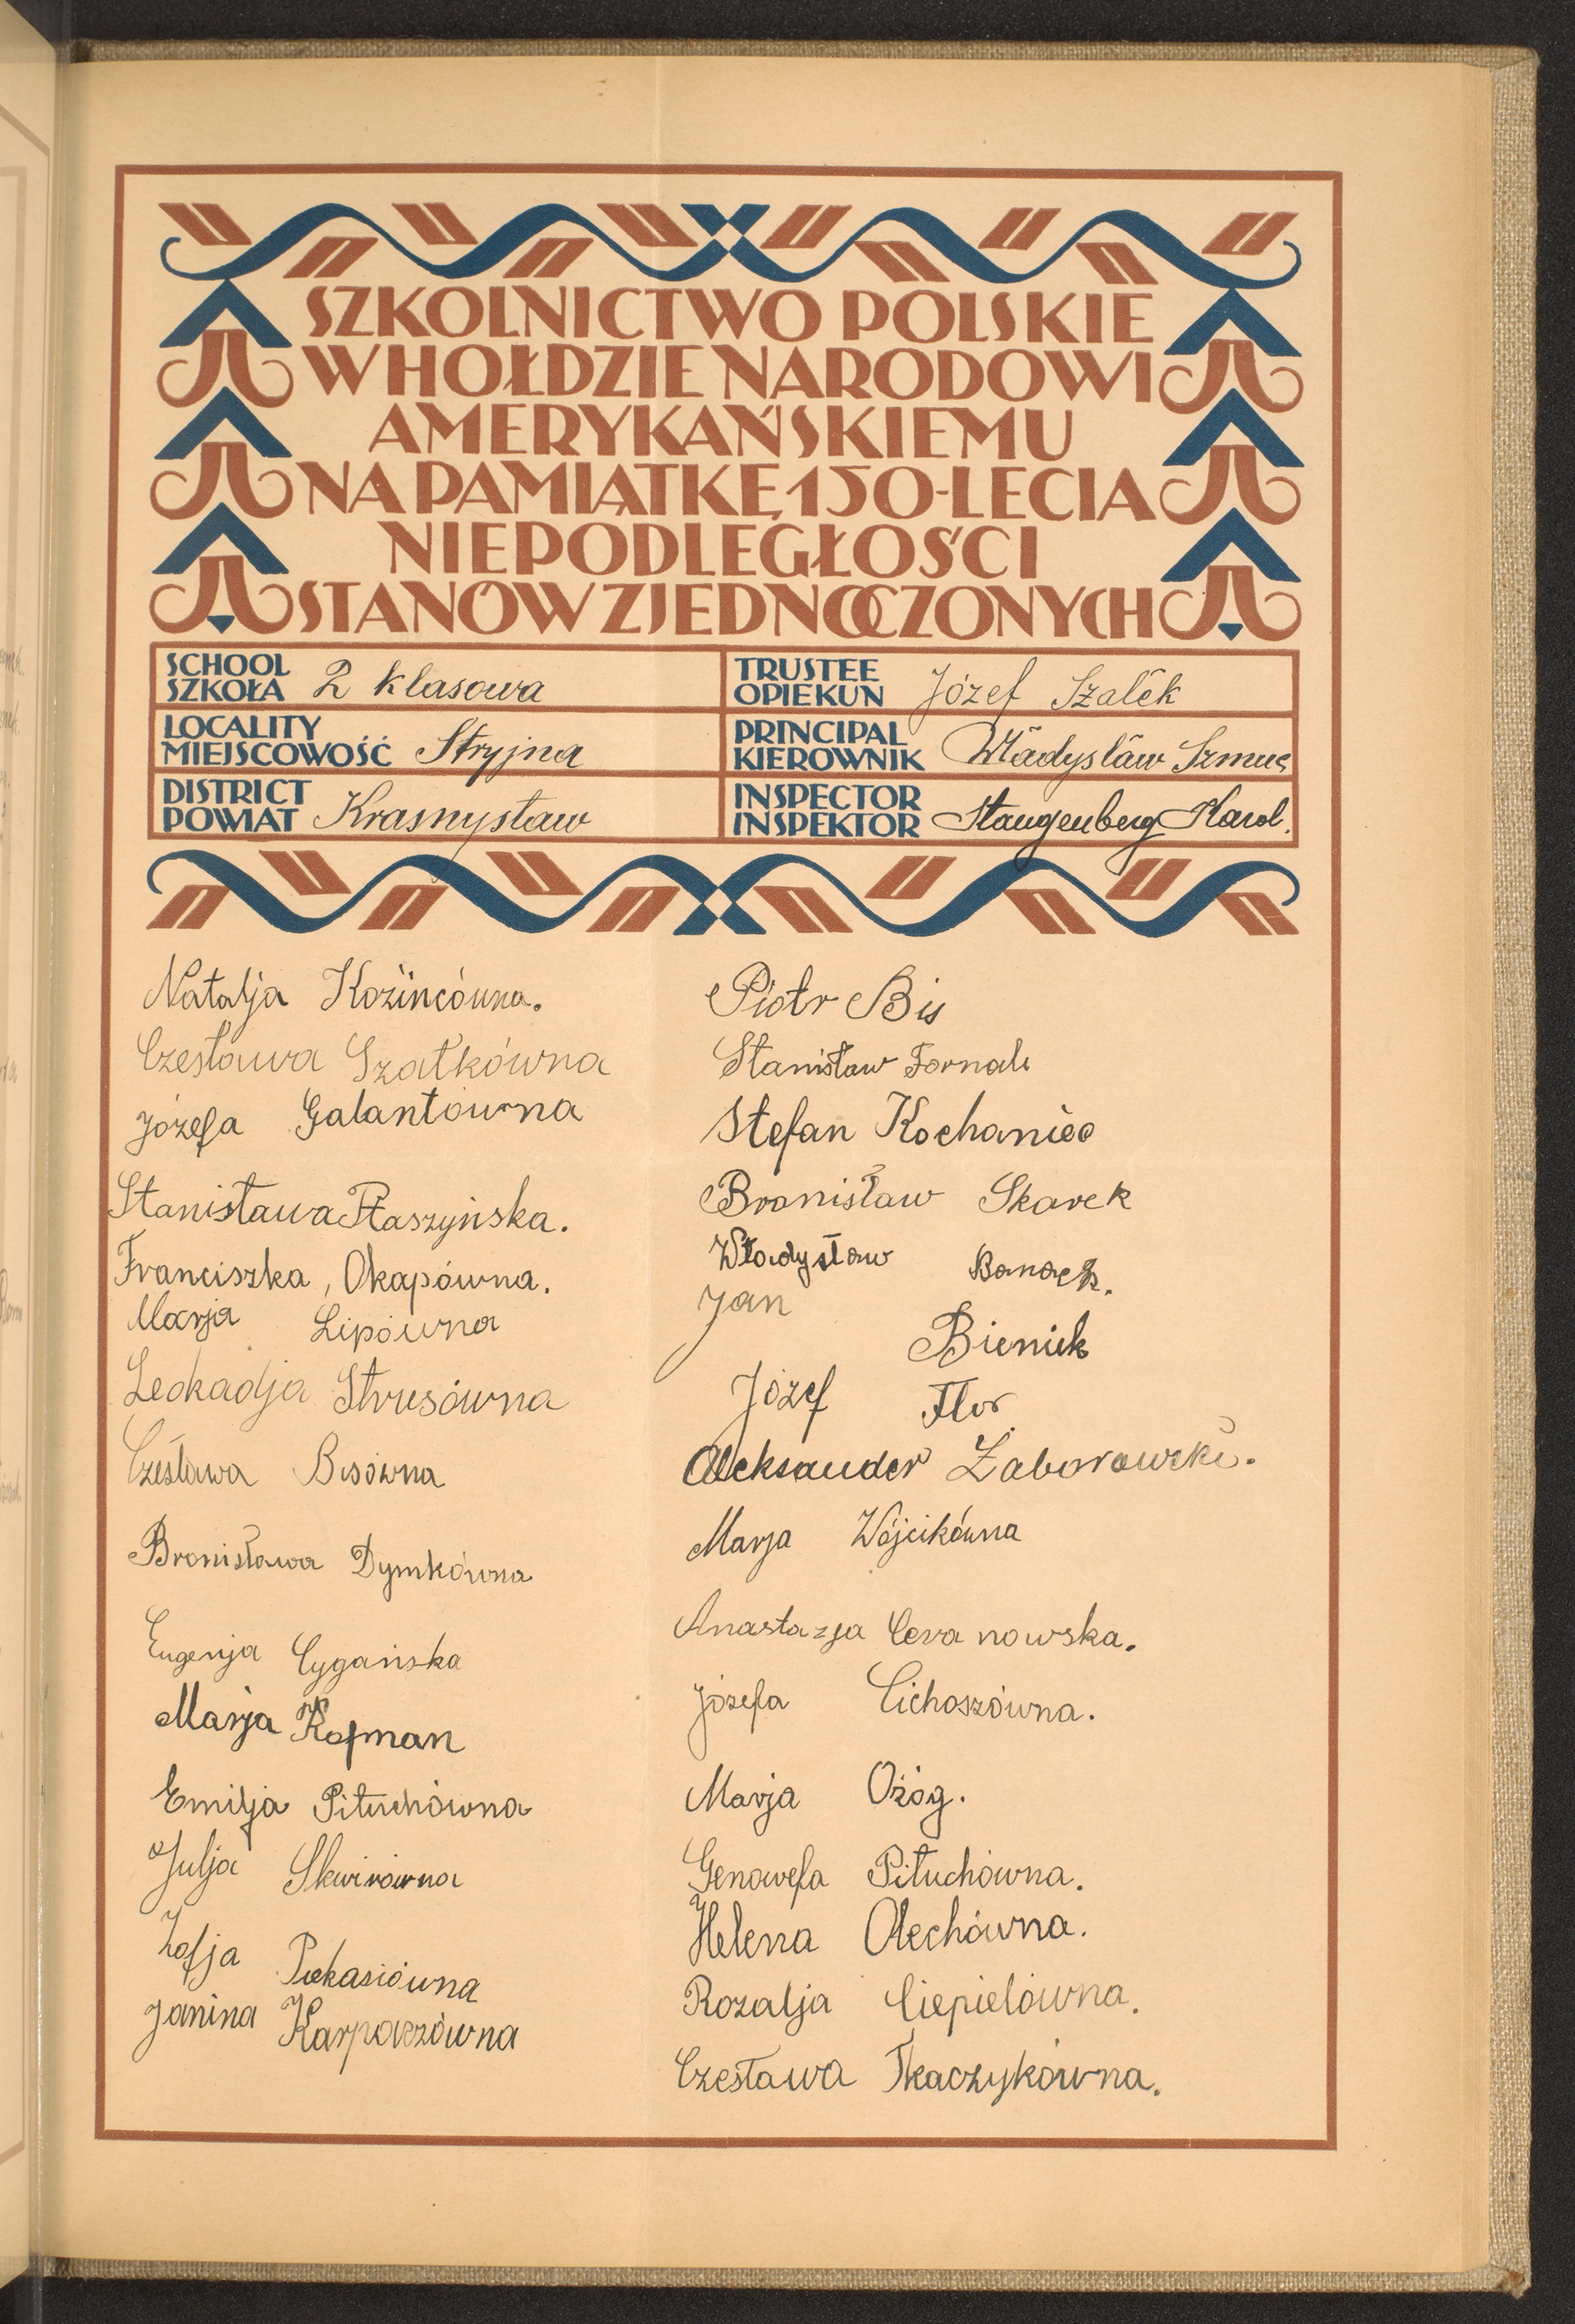 SZKOLNICTWO POLSKIE
W HOŁDZIE NARODOWI
AMERYKAŃSKIEMU
NA PAMIĄTKĘ 150-LECIA
NIEPODLEGŁOŚCI
STANÓW ZJEDNOCZONYCH
SCHOOL
SZKOŁA 2 klasowa
TRUSTEE
OPIEKUN Józef Szałek
LOCALITY
MIEJSCOWOŚĆ Stryjna
PRINCIPAL
KIEROWNIK Władysław Szmuc
DISTRICT
POWIAT Krasnystaw
INSPECTOR
INSPEKTOR Stangenberg Karol.
Natalja Kozińcówna.
Czesława Szałkówna
Józefa Galantówna
Stanisława Ptaszyńska.
Franciszka, Okapówna.
Marja Lipówna
Leokadja Strusówna
Czesława Bisówna
Bronisława Dymkówna
Eugenja Cygańska
Marja Kofman
Emilja Pituchówna
Julja Skwirówna
Zofja Piekasiówna
Janina Karpaczówna
Piotr Bis
Stanisław Fornal
Stefan Kochaniec
Bronisław Skorek
Władysław Banach.
Jan Bieniek
Józef Flor
Aleksander Zaborowski.
Marja Wójcikówna
Anastazja Ceranowska.
Józefa Cichoszówna.
Marja Ożóg.
Genowefa Pituchówna.
Helena Olechówna.
Rozalja Ciepielówna.
Czesława Tkaczykówna.